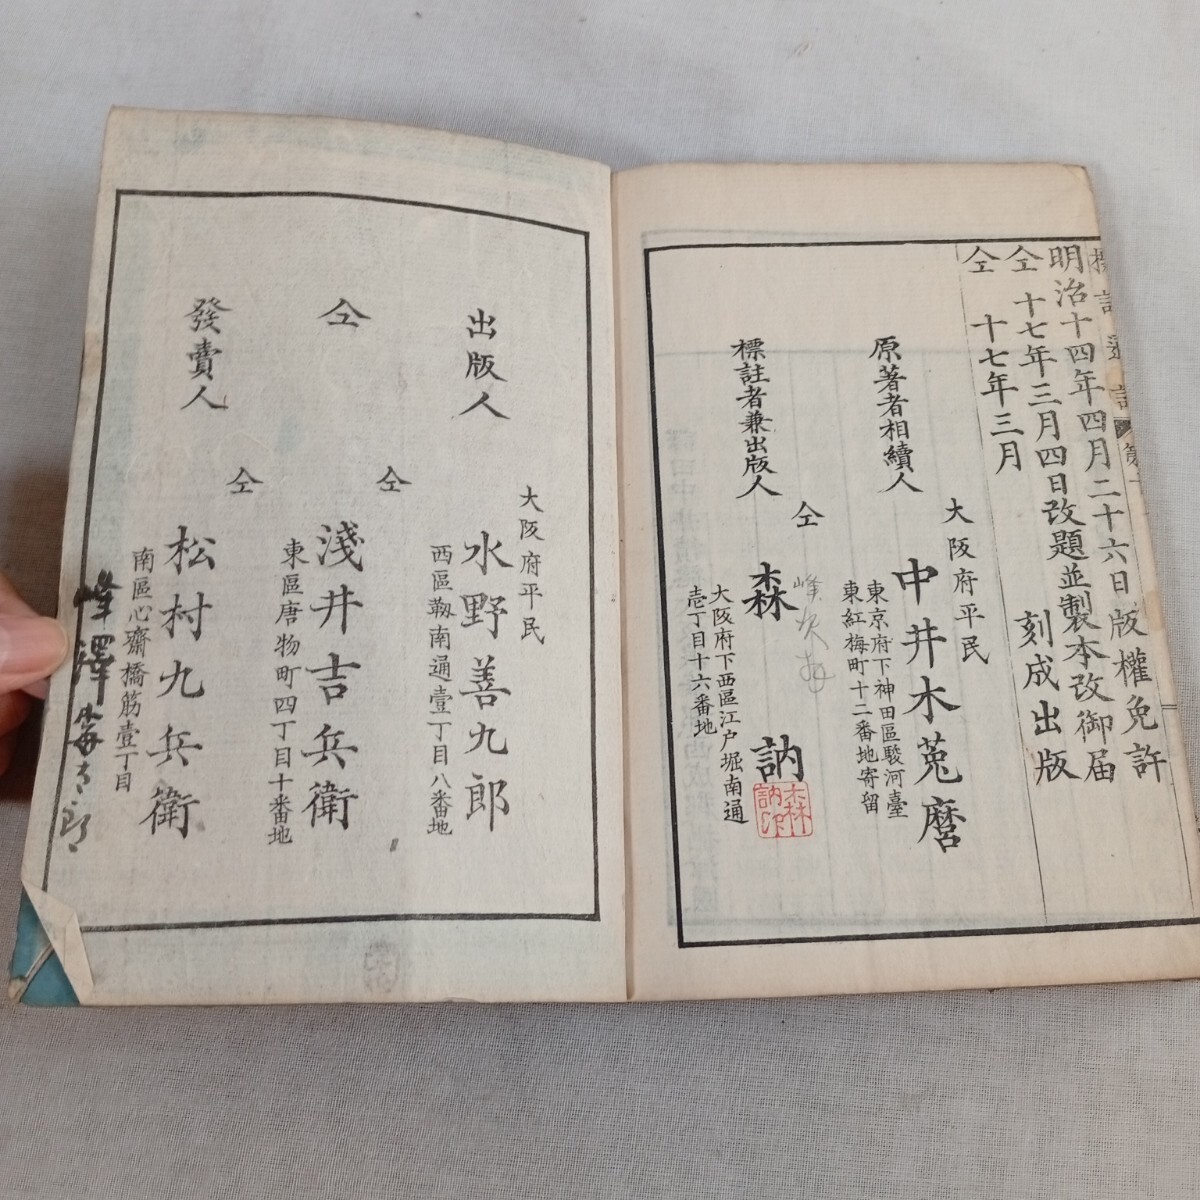 明治十四年四月二十六日版權免許
仝十七年三月四日改題並製本改御届
仝十七年三月 刻成出版
大阪府平民
原著者相續人 中井木菟麿
東京府下神田區駿河臺
東紅梅町十二番地寄留
仝
標註者兼出版人 森 訥
大阪府下西區江戸堀南通
壱丁目十六番地
大阪府平民
出版人 水野善九郎
西區靱南通壹丁目八番地
仝
仝 淺井吉兵衛
東區唐物町四丁目十番地
仝
發賣人 松村九兵衛
南區心齋橋筋壹丁目